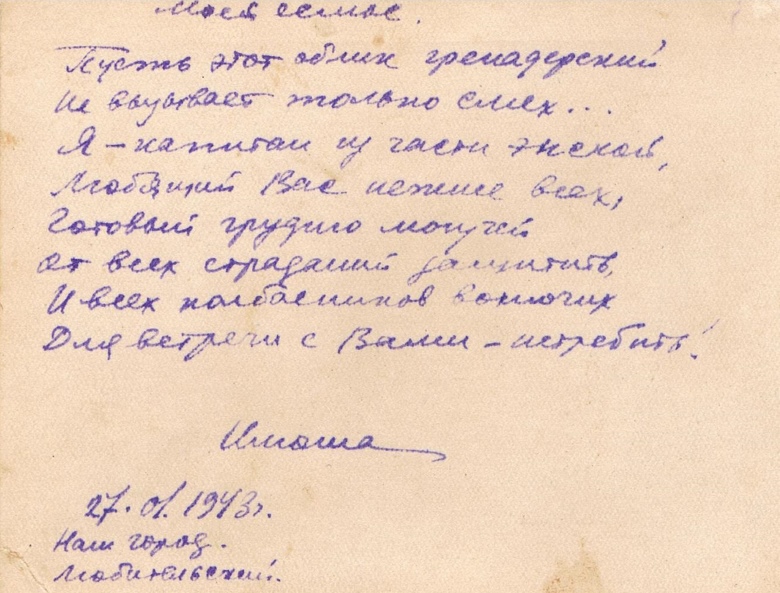 Моей семье.
Пусть этот облик гренадерский
Не вызывает только смех...
Я – капитан из части энской,
Любящий Вас нежнее всех,
Готовый грудью могучей
От всех страданий защитить,
И всех колбасников вонючих
Для встречи с Вами – истребить!
27.01.1943г.
Наш город.
Любительский.